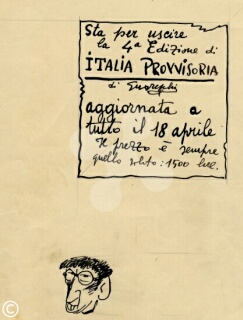 Sta per uscire
la 4ª Edizione di
ITALIA PROVVISORIA
di Guareschi
aggiornata a
tutto il 18 aprile
Il prezzo è sempre
quello solito: 1500 lire.
©